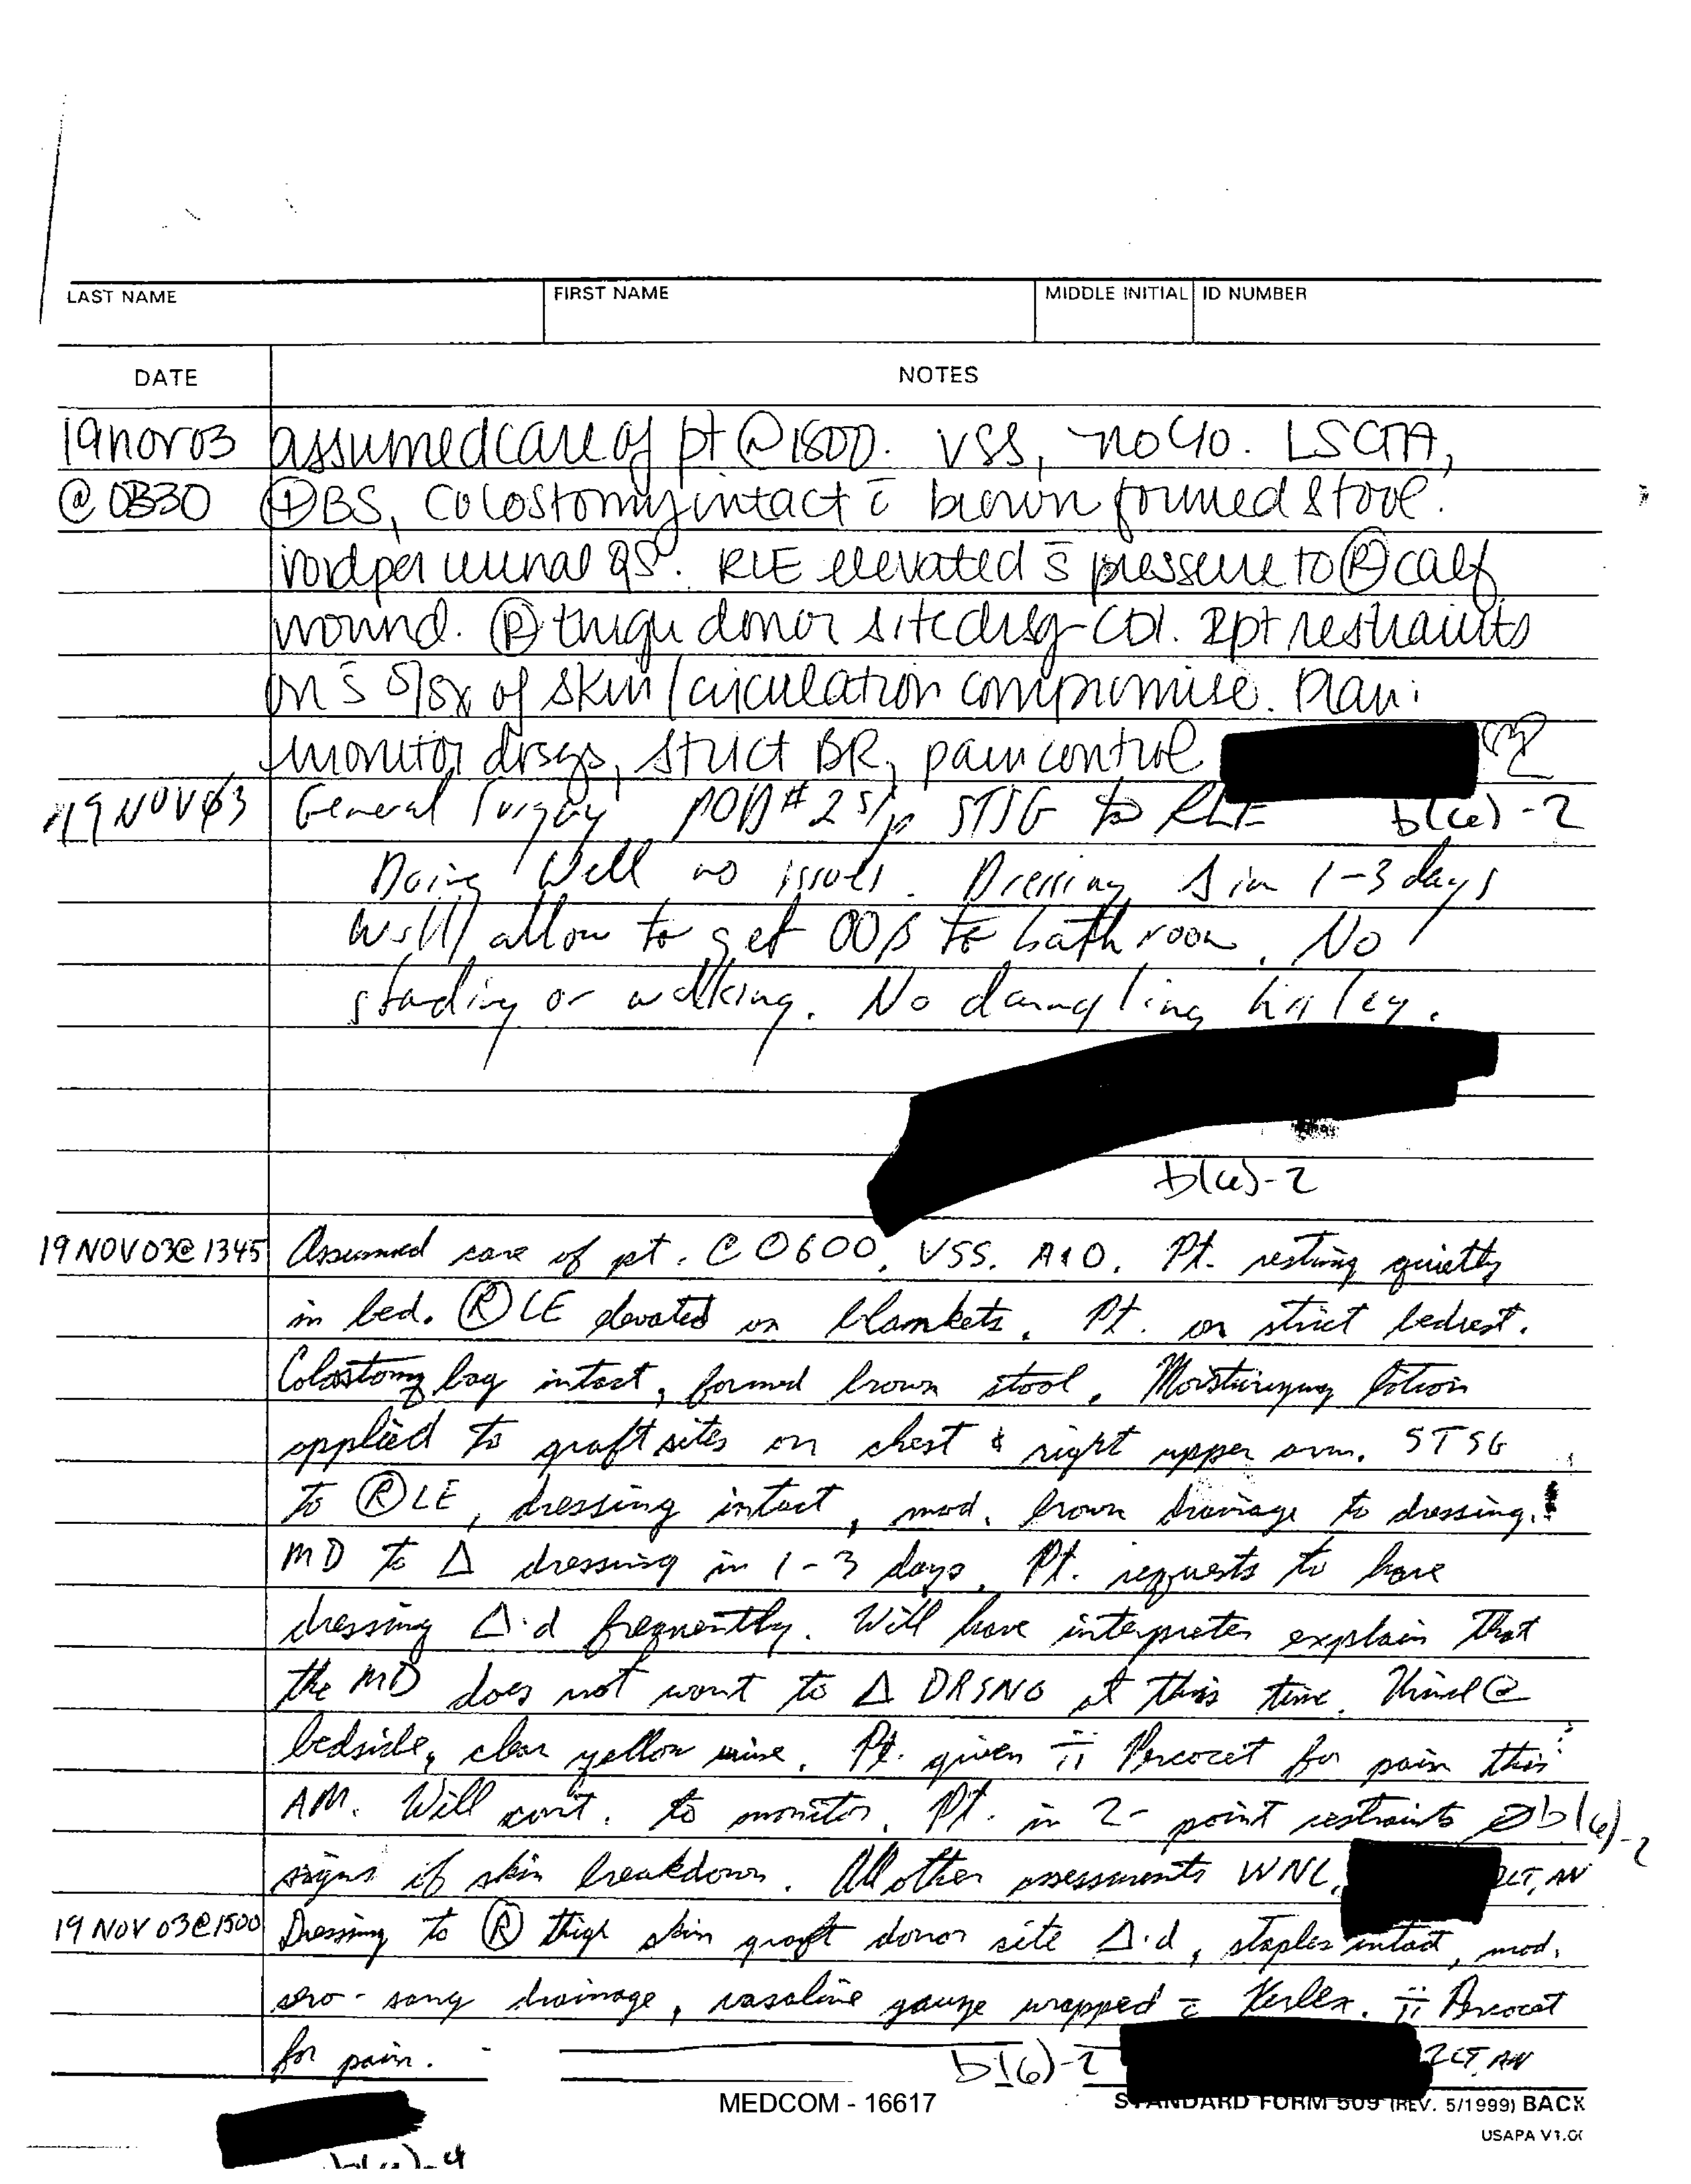 LAST NAME FIRST NAME MIDDLE INITIAL ID NUMBER
DATE NOTES
19nov03 assumed care of pt @ 1800. VSS, no c/o. LSCTA,
@ 0330 ⊕BS, Colostomy intact c̄ brown formed stool.
void per urinal QS. RLE elevated s̄ pressure to Ⓡ calf
wound. Ⓡ thigh donor site drsg CDI. 2pt restraints
on s̄ s/sx of skin/circulation compromise. Plan:
monitor drsgs, strict BR, pain control
19 NOV 03 General Surgery POD #2 s/p STSG to RLE b(6)-2
Doing Well no issues. Dressing Δ in 1-3 days
Will allow to get OOB to bathroom. No
standing or walking. No dangling his leg.
b(6)-2
19 NOV 03 @ 1345 Assumed care of pt. @ 0600. VSS. A&O. Pt. resting quietly
in bed. Ⓡ LE elevated on blankets. Pt. on strict bedrest.
Colostomy bag intact, formed brown stool. Moisturizing lotion
applied to graft sites on chest & right upper arm. STSG
to Ⓡ LE, dressing intact, mod. brown drainage to dressing.
MD to Δ dressing in 1-3 days. Pt. requests to have
dressing Δ'd frequently. Will have interpreter explain that
the MD does not want to Δ DRSNG at this time. Urinal @
bedside, clear yellow urine. Pt. given ii Percocet for pain this
AM. Will cont. to monitor. Pt. in 2-point restraints ∅ b(6)-2
signs of skin breakdown. All other assessments WNL. 2LT, AN
19 NOV 03 @ 1500 Dressing to Ⓡ thigh skin graft donor site Δ'd, staples intact, mod.
sero-sang drainage, vasoline gauze wrapped c̄ Kerlex. ii Percocet
for pain. b(6)-2 2LT, AN
MEDCOM - 16617 STANDARD FORM 509 (REV. 5/1999) BACK
USAPA V1.00
b(6)-4